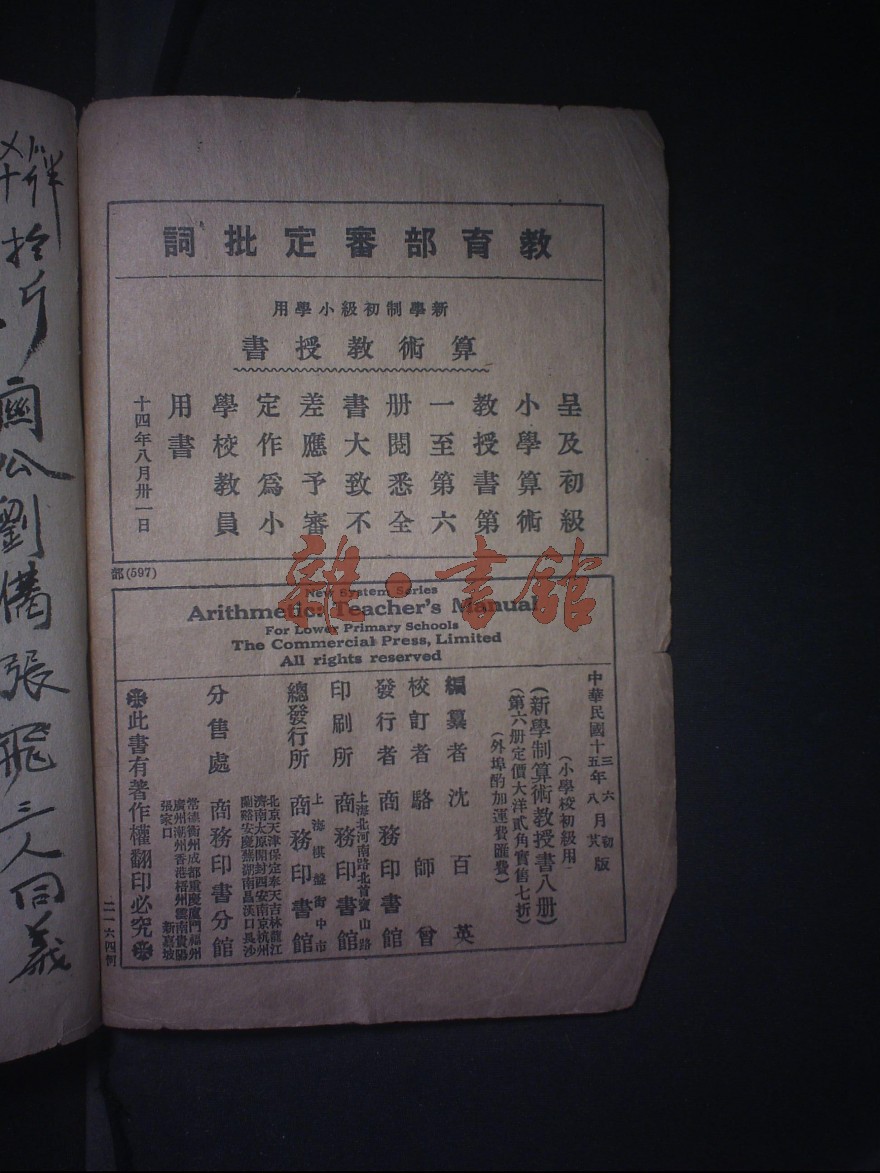 教育部審定批詞
新學制初級小學用
算術教授書
呈及初級
小學算術
教授書第
一至第六
册閱悉全
書大致不
差應予審
定作爲小
學校教員
用書
十四年八月卅一日
部(597)
New System Series
Arithmetic: Teacher's Manual
For Lower Primary Schools
The Commercial Press, Limited
All rights reserved
中華民國十三年六月初版
中華民國十五年八月
(小學校初級用)
(新學制算術教授書八册)
(第六册定價大洋貳角實售七折)
(外埠酌加運費匯費)
編纂者 沈百英
校訂者 駱師曾
發行者 商務印書館
印刷所 上海北河南路北首寶山路 商務印書館
總發行所 上海棋盤街中市 商務印書館
分售處 商務印書分館
北京天津保定奉天吉林龍江
濟南太原開封西安南京杭州
蘭谿安慶蕪湖南昌漢口長沙
常德衡州成都重慶廈門福州
廣州潮州香港梧州雲南貴陽
張家口 新嘉坡
此書有著作權翻印必究
二一六四
雜·書館
拾斤
公劉俻張飛三人同義